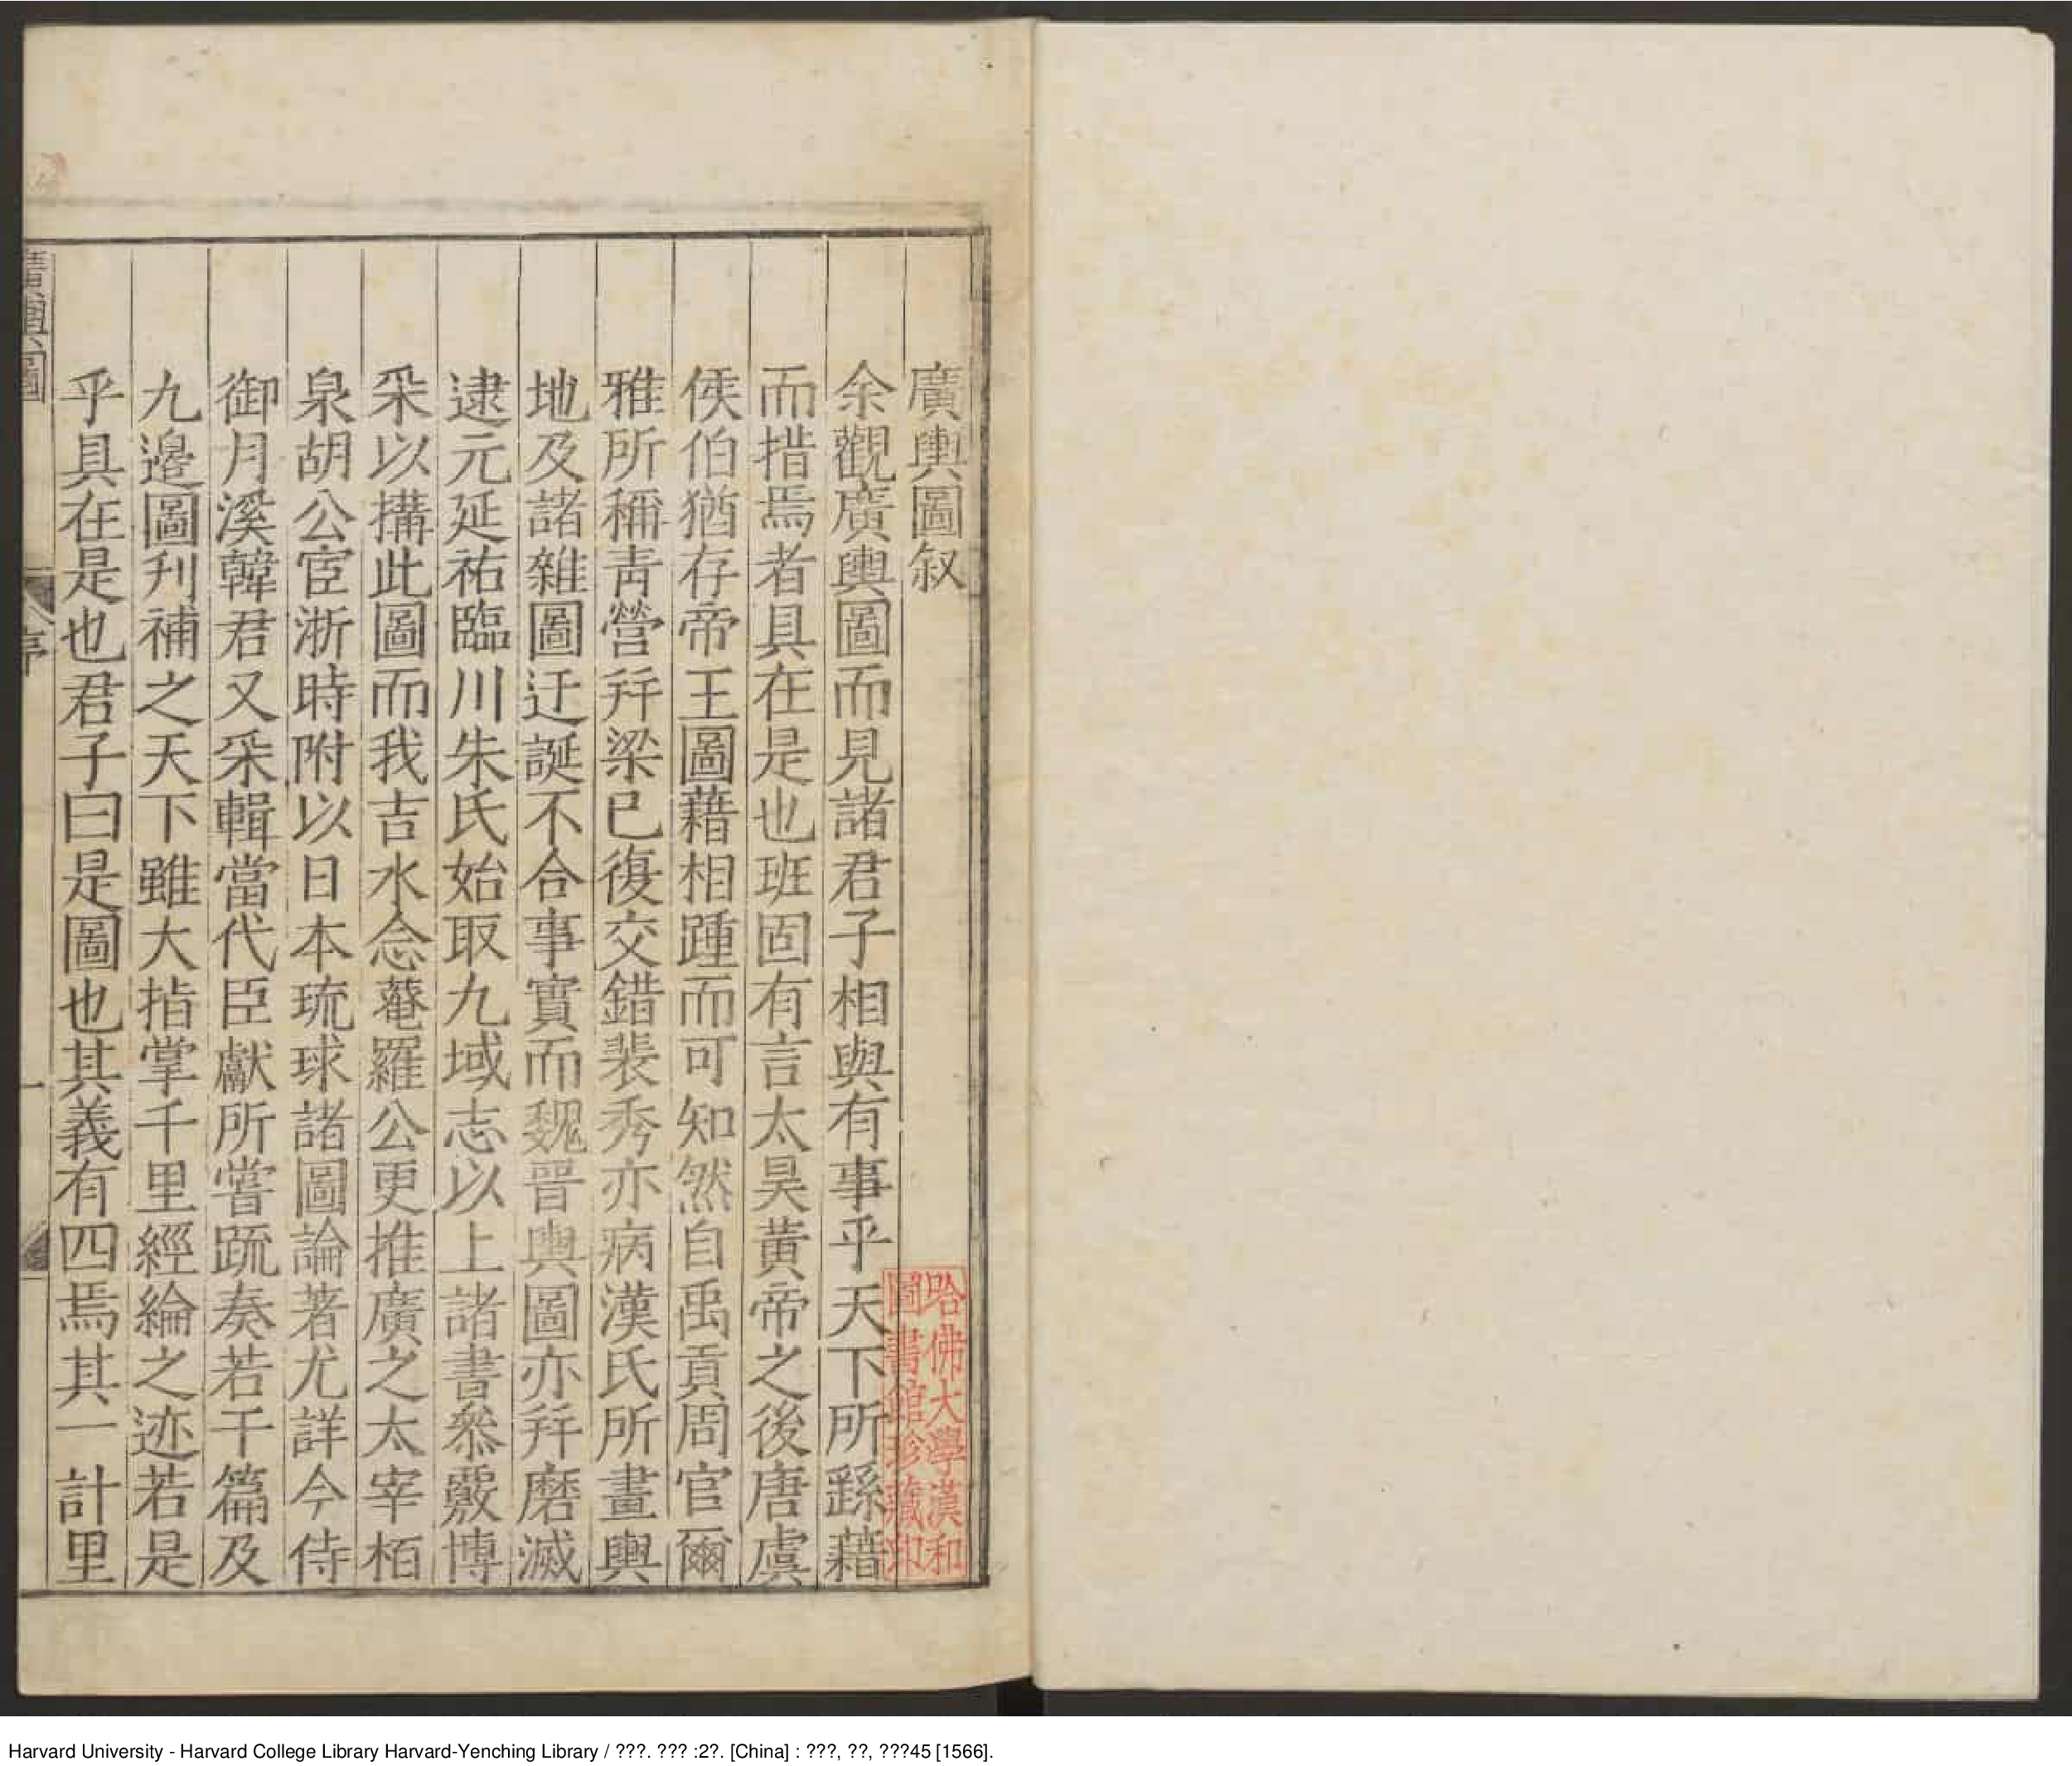 廣輿圖叙
余觀廣輿圖而見諸君子相與有事乎天下所繇藉
而措焉者具在是也班固有言太昊黃帝之後唐虞
侯伯猶存帝王圖藉相踵而可知然自禹貢周官爾
雅所稱青營幷梁已復交錯裴秀亦病漢氏所畫輿
地及諸雜圖迂誕不合事實而魏晉輿圖亦幷磨滅
逮元延祐臨川朱氏始取九域志以上諸書叅覈博
采以搆此圖而我吉水念菴羅公更推廣之太宰栢
泉胡公宦浙時附以日本琉球諸圖論著尤詳今侍
御月溪韓君又采輯當代臣獻所嘗䟽奏若干篇及
九邊圖刋補之天下雖大指掌千里經綸之迹若是
乎具在是也君子曰是圖也其義有四焉其一計里
廣輿圖
序
一
哈佛大學漢和
圖書館珍藏印
Harvard University - Harvard College Library Harvard-Yenching Library / ???. ??? :2?. [China] : ???, ??, ???45 [1566].